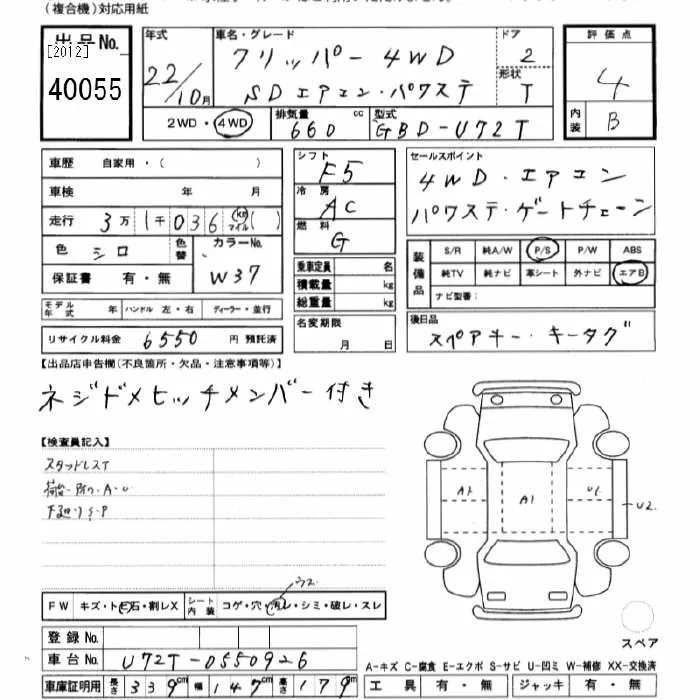 (複合機)対応用紙
出品No.
[2012]
40055
年式
22/10月
車名・グレード
クリッパー 4WD
SDエアコン・パワステ
ドア
2
形状
T
評価点
4
内装
B
2WD・4WD
排気量
660 cc
型式
GBD-U72T
車歴 自家用・( )
車検 年 月
走行 3万1千036 km マイル ( )
色 シロ 色替 カラーNo. W37
保証書 有・無
モデル年式 年 ハンドル 左・右 ディーラー・並行
リサイクル料金 6550 円 預託済
シフト
F5
冷房
AC
燃料
G
乗車定員 名
積載量 kg
総重量 kg
名変期限
月 日
セールスポイント
4WD・エアコン
パワステ・ゲートチェーン
装備品
S/R 純A/W P/S P/W ABS
純TV 純ナビ 革シート 外ナビ エアB
ナビ型番:
後日品
スペアキー・キータグ
【出品店申告欄(不良箇所・欠品・注意事項等)】
ネジドメヒッチメンバー付き
【検査員記入】
スタッドレスT
荷台・所々・A・U
下廻りS・P
A1
A1
U1
U2
FW キズ・ト石・割レX シート内装 コゲ・穴・汚レ・シミ・破レ・スレ
登録No.
車台No. U72T-0550926
車庫証明用 長さ 339cm 幅 147cm 高さ 179cm
スペア
A-キズ C-腐食 E-エクボ S-サビ U-凹ミ W-補修 XX-交換済
工具 有・無 ジャッキ 有・無